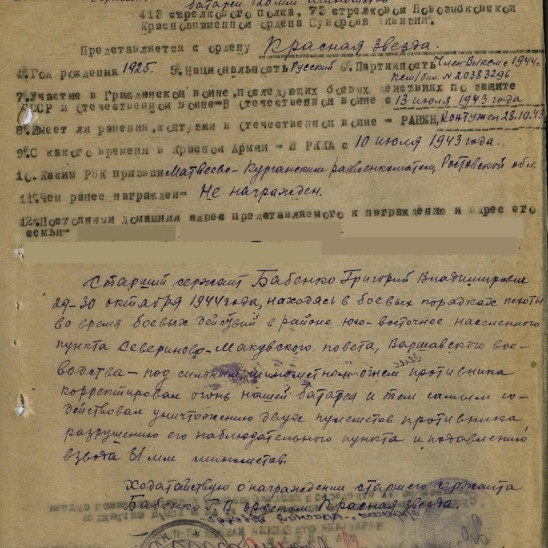 батареи 120 мм минометов
413 стрелкового полка, 73 стрелковой Новозыбковской
Краснознаменной ордена Суворова дивизии.
Представляется к ордену Красная Звезда.
4. Год рождения 1925. 5. Национальность Русский 6. Партийность Член ВЛКСМ с 1944г.
№ 20383296.
7. Участие в Гражданской войне, последующих боевых действиях по защите
СССР и отечественной войне = В отечественной войне с 13 июля 1943 года
8. Имеет ли ранения, контузии в отечественной войне - РАНЕН, Контужен 28.10.43
9. С какого времени в Красной Армии = В РККА с 10 июля 1943 года.
10. Каким РВК призван Матвеево-Курганским райвоенкоматом, Ростовской обл.
11. Чем ранее награжден = Не награжден.
12. Постоянный домашний адрес представляемого к награждению и адрес его
семьи=
Старший сержант Бабенко Григорий Владимирович
29-30 октября 1944 года, находясь в боевых порядках пехоты
во время боевых действий в районе юго-восточнее населенного
пункта Севериново-Макувского повета, Варшавского вое-
водства - под сильным минометным огнем противника
корректировал огонь нашей батареи и тем самым со-
действовал уничтожению двух пулеметов противника,
разрушению его наблюдательного пункта и подавлению
взвода 81 мм минометов.
Ходатайствую о награждении старшего сержанта
Бабенко Г.В. орденом Красная Звезда.